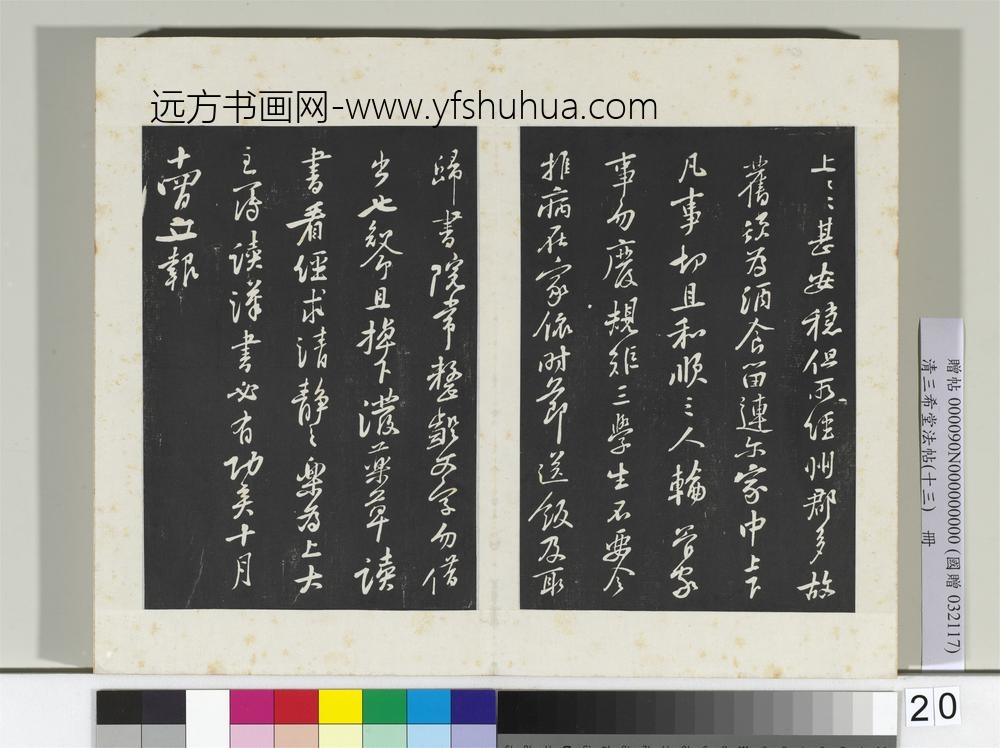 远方书画网-www.yfshuhua.com
上々甚安穩但所經州郡多故
舊頗為酒食留連爾家中上下
凡事切且和順三人輪管家
事勿廢規矩三學生不要令
推病在家依時節送飯及取
歸書院常整齪文字勿借
出也知命且掉下潑藥草讀
書看經求清靜之樂為上大
主簿讀漢書必有功矣十月
十一日立報
贈帖 000090N000000000 (國贈 032117)
清三希堂法帖(十三) 冊
20